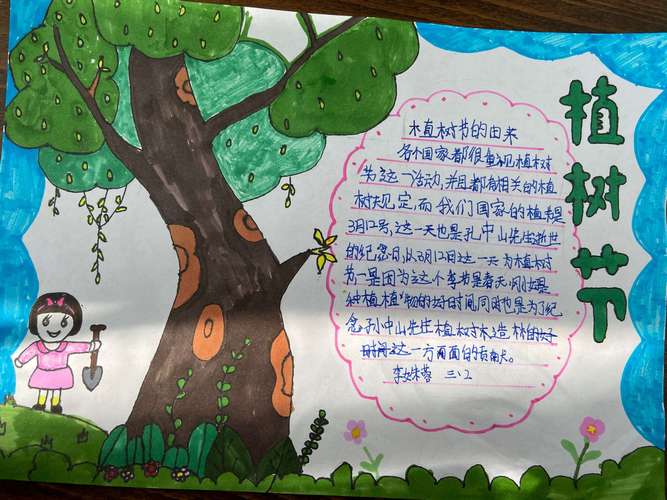 植树节
植树节的由来
各个国家都很重视植树
为这一活动,并且都有相关的植
树规定,而我们国家的植树是
3月12号,这一天也是孔中山先生逝世
的纪念日,从3月12日这一天为植树
节一是因为这个季节是春天,刚好是
种植植物的好时间,同时也是为了纪
念孙中山先生植树木造林的好
时间这一方面面的
李 蓉 三、2